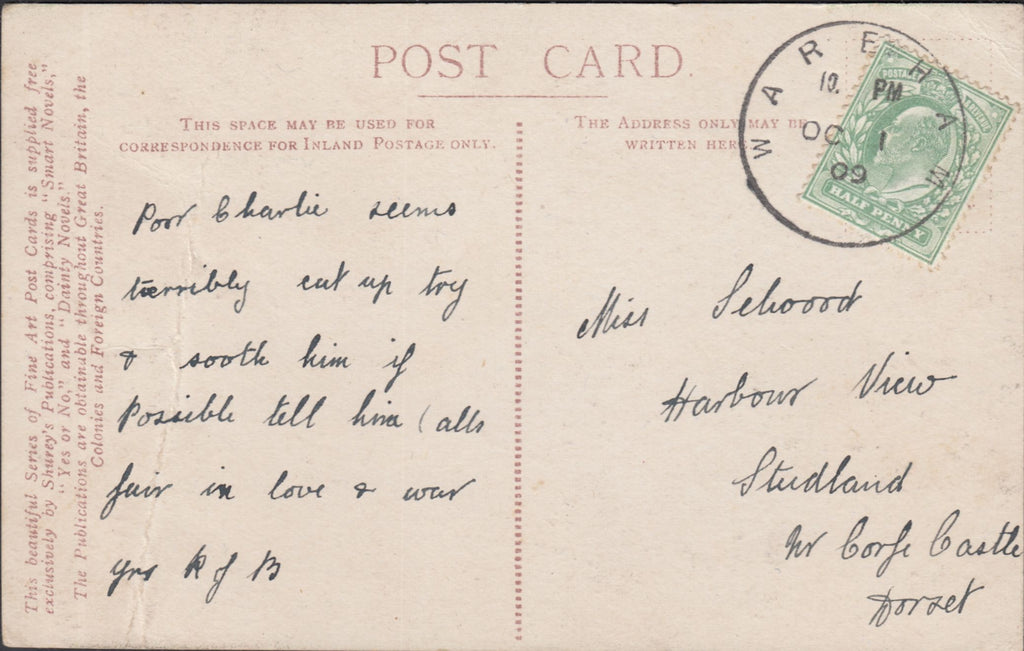 This beautiful Series of Fine Art Post Cards is supplied free
exclusively by Shurey's Publications, comprising "Smart Novels,"
"Yes or No," and "Dainty Novels."
The Publications are obtainable throughout Great Britain, the
Colonies and Foreign Countries.
POST CARD.
THIS SPACE MAY BE USED FOR
CORRESPONDENCE FOR INLAND POSTAGE ONLY.
Poor Charlie seems
terribly cut up try
& sooth him if
Possible tell him (alls
fair in love & war
yrs K of B
THE ADDRESS ONLY MAY BE
WRITTEN HERE.
WAREHAM
10. PM
OC 1
09
POSTAGE
HALF PENNY
Miss Selwood
Harbour View
Studland
Nr Corfe Castle
Dorset